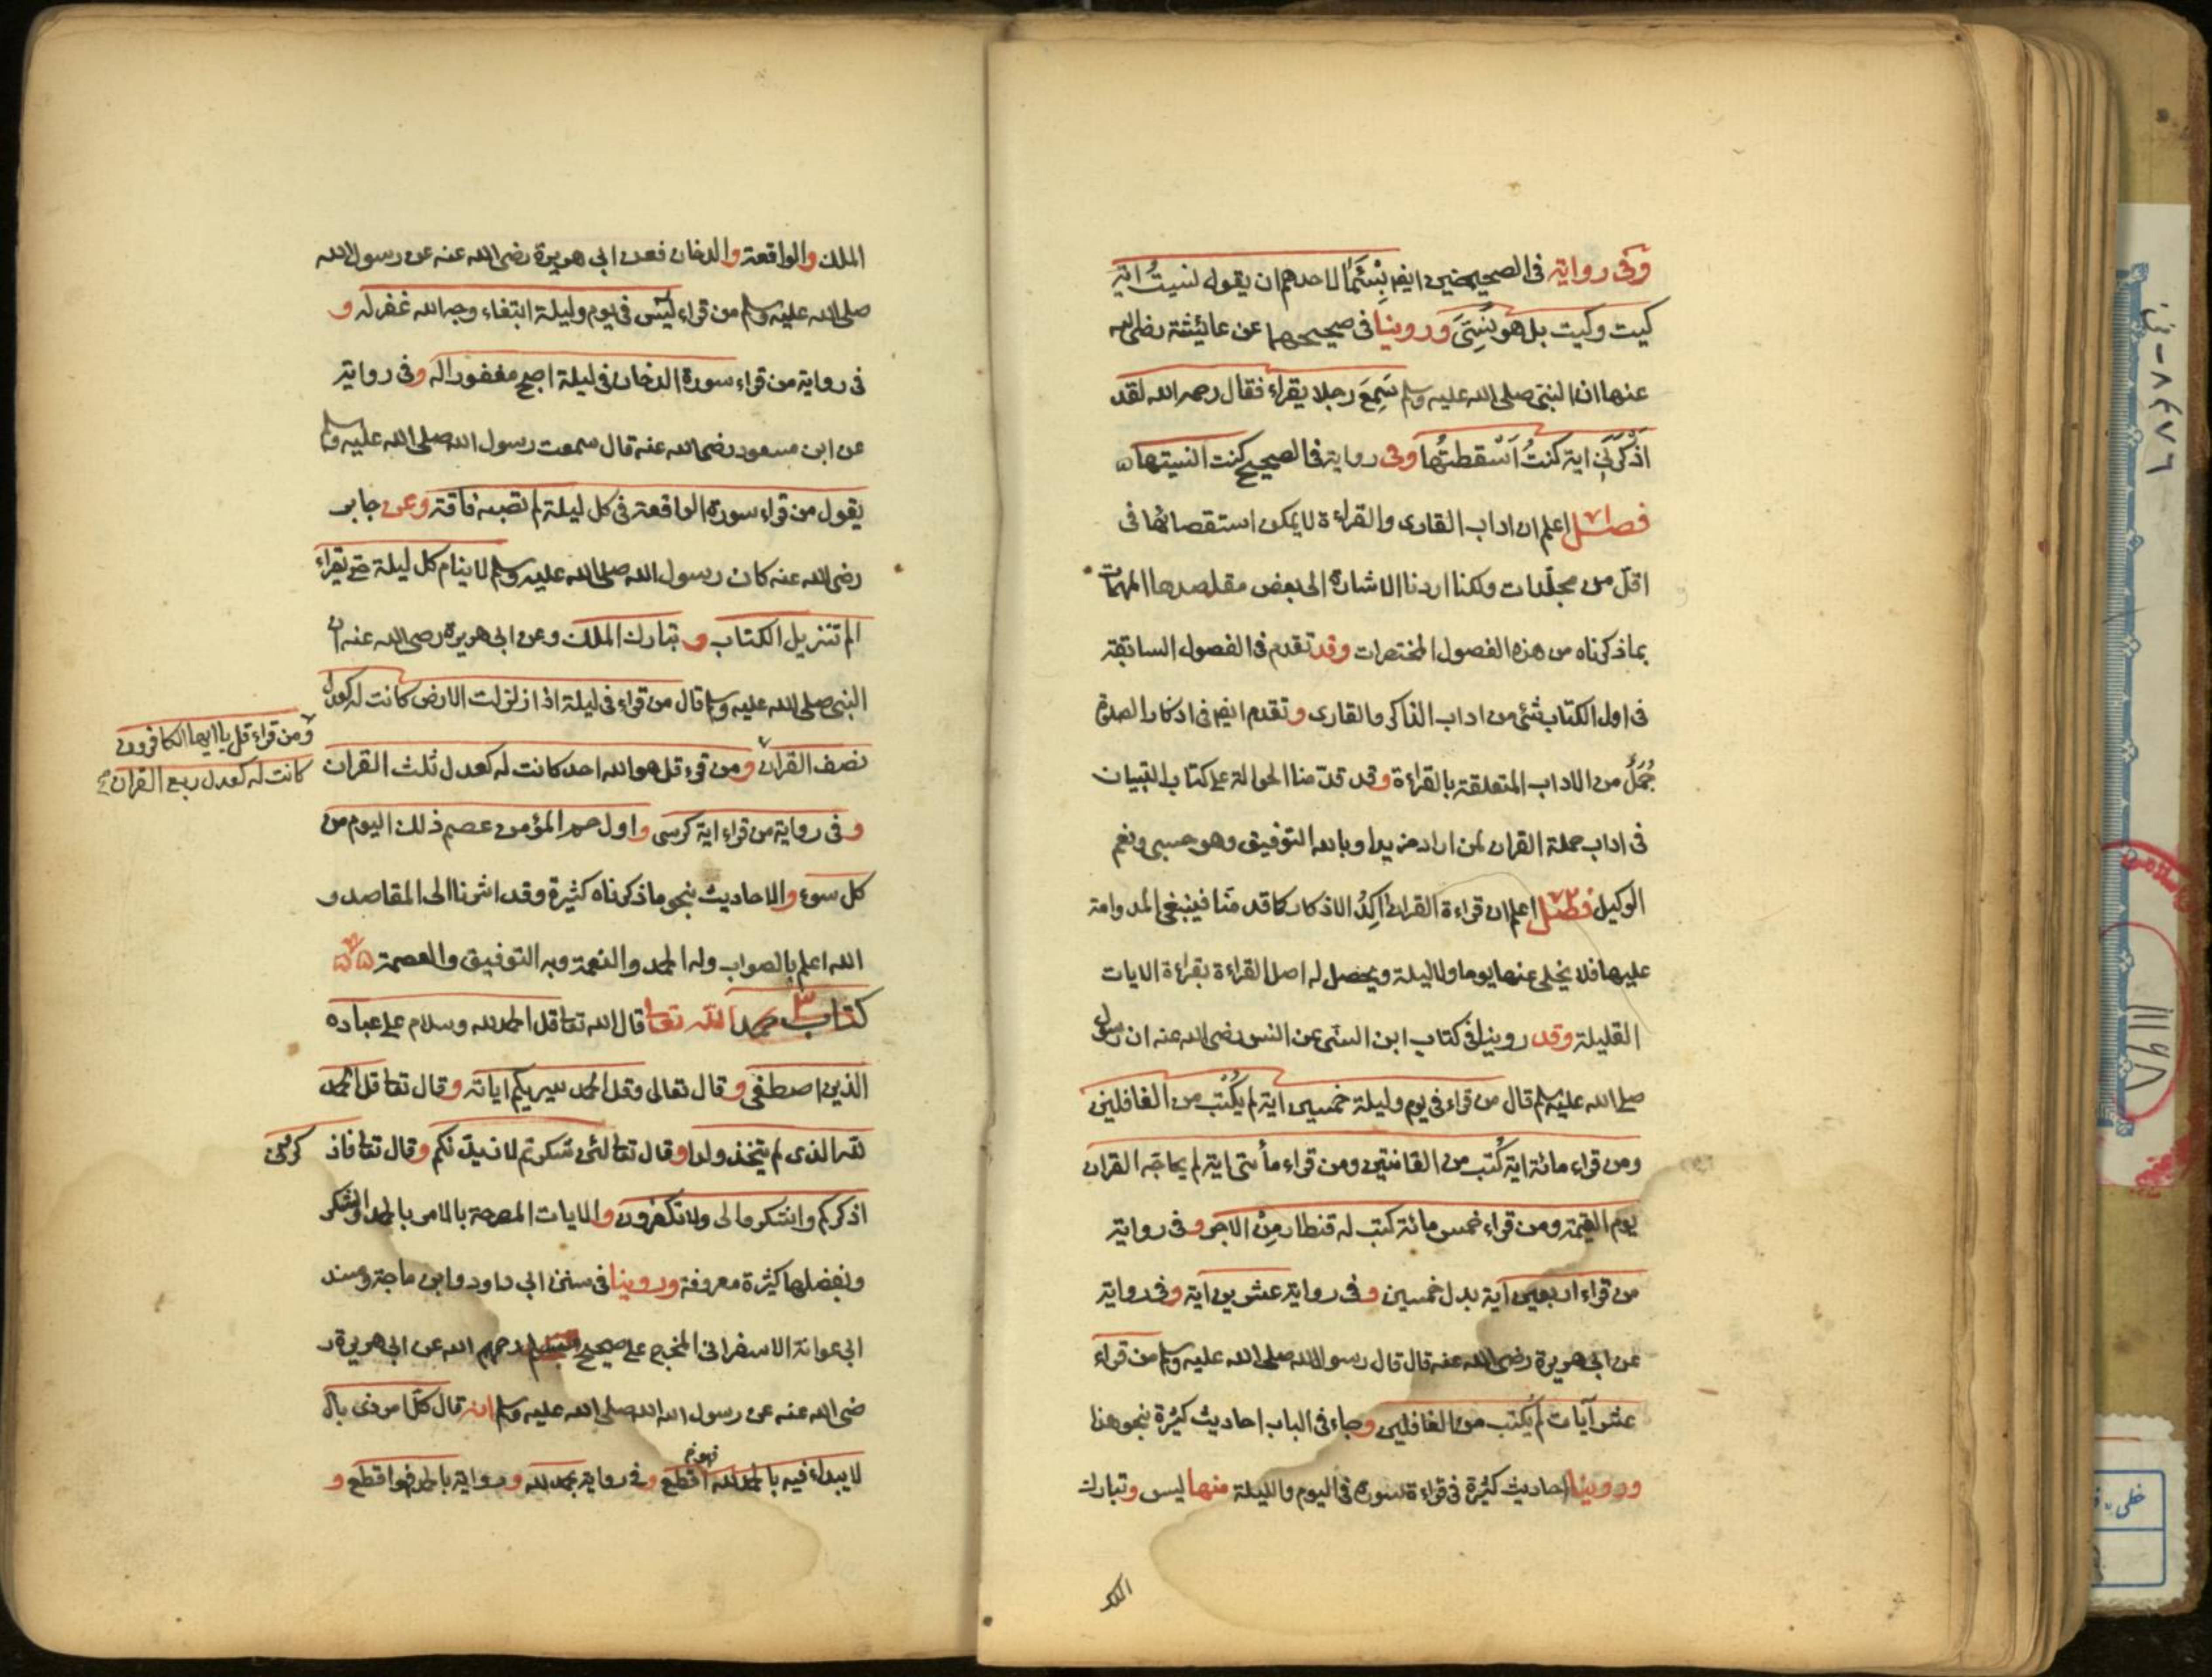 وفى رواية فى الصحيحين ايضا بِئْسَمَا لاحدهم ان يقول نسيتُ اية
كيت وكيت بل هو نُسِّىَ وروينا فى صحيحيهما عن عائشة رضى الله
عنها ان النبى صلى الله عليه وسلم سَمِعَ رجلا يقراء فقال رحمه الله لقد
اَذْكَرَنى اية كنتُ اَسْقطتُها وفى رواية فى الصحيح كنت انسيتها
فصل اعلم ان اداب القارى والقراءة لا يمكن استقصائها فى
اقل من مجلّدات ولكنا اردنا الاشارة الى بعض مقاصدها المهمات
بما ذكرناه من هذه الفصول المختصرات وقد تقدم فى الفصول السابقة
فى اول الكتاب شئ من اداب الذاكر والقارى وتقدم ايضا فى اذكار الصلوة
جُمَلٌ من الاداب المتعلقة بالقراءة وقد قدّمنا الحوالة على كتاب التبيان
فى اداب حملة القران لمن اراد مزيدا وبالله التوفيق وهو حسبى ونعم
الوكيل فصل اعلم ان قراءة القران آكدُ الاذكار كما قدمنا فينبغى المداومة
عليها فلا يخلى عنها يوما ولا ليلة ويحصل له اصل القراءة بقراءة الايات
القليلة وقد روينا فى كتاب ابن السنى عن انس رضى الله عنه ان رسول
صلى الله عليه وسلم قال من قراء فى يوم وليلة خمسين اية لم يُكتب من الغافلين
ومن قراء مائة اية كُتب من القانتين ومن قراء مأتى اية لم يحاجّه القران
يوم القيمة ومن قراء خمس مائة كتب له قنطار مِن الاجر وفى رواية
من قراء اربعين آية بدل خمسين وفى رواية عشرين اية وفى رواية
عن ابى هريرة رضى الله عنه قال قال رسول الله صلى الله عليه وسلم من قراء
عشر آيات لم يُكتب من الغافلين وجاء فى الباب احاديث كثيرة بنحو هذا
وروينا احاديث كثيرة فى قراءة سورة فى اليوم والليلة منها يس وتبارك
الملك
الملك والواقعة والدخان فعن ابى هريرة رضى الله عنه عن رسول الله
صلى الله عليه وسلم من قراء يٰس فى يوم وليلة ابتغاء وجه الله غفر له و
فى رواية من قراء سورة الدخان فى ليلة اصبح مغفورا له وفى رواية
عن ابن مسعود رضى الله عنه قال سمعت رسول الله صلى الله عليه وسلم
يقول من قراء سورة الواقعة فى كل ليلة لم تصبه فاقة وعن جابر
رضى الله عنه كان رسول الله صلى الله عليه وسلم لا ينام كل ليلة حتى يقراء
الم تنزيل الكتاب و تبارك الملك وعن ابى هريرة رضى الله عنه ان
النبى صلى الله عليه وسلم قال من قراء فى ليلة اذا زلزلت الارض كانت له كعدل
نصف القران ومن قرء قل هو الله احد كانت له كعدل ثلث القران
ومن قراء قل يا ايها الكافرون
كانت له كعدل ربع القران
وفى رواية من قراء اية كرسى واول حم المؤمن عصم ذلك اليوم من
كل سوء والاحاديث بنحو ما ذكرناه كثيرة وقد اشرنا الى المقاصد و
الله اعلم بالصواب وله الحمد والنعمة وبه التوفيق والعصمة
كتاب حمد الله تعا قال الله تعا قل الحمد لله وسلام على عباده
الذين اصطفى وقال تعالى وقل الحمد سيريكم اياته وقال تعا قل الحمد
لله الذى لم يتخذ ولدا وقال تعا لئن شكرتم لازيدنكم وقال تعا فاذ كرونى
اذكركم واشكروا لى ولا تكفرون والايات المصرحة بالامر بالحمد والشكر
وبفضلها كثيرة معروفة وروينا فى سنن ابى داود وابن ماجة ومسند
ابى عوانة الاسفرانى المخرج على صحيح مسلم رحمهم الله عن ابى هريرة ر
ضى الله عنه عن رسول الله صلى الله عليه وسلم انه قال كل امر ذى بال
لا يبداء فيه بالحمد لله فهو اقطع وفى رواية بحمد لله وفى رواية بالحمد فهو اقطع و
٨٤٧٦
١١١٦٨
خطى